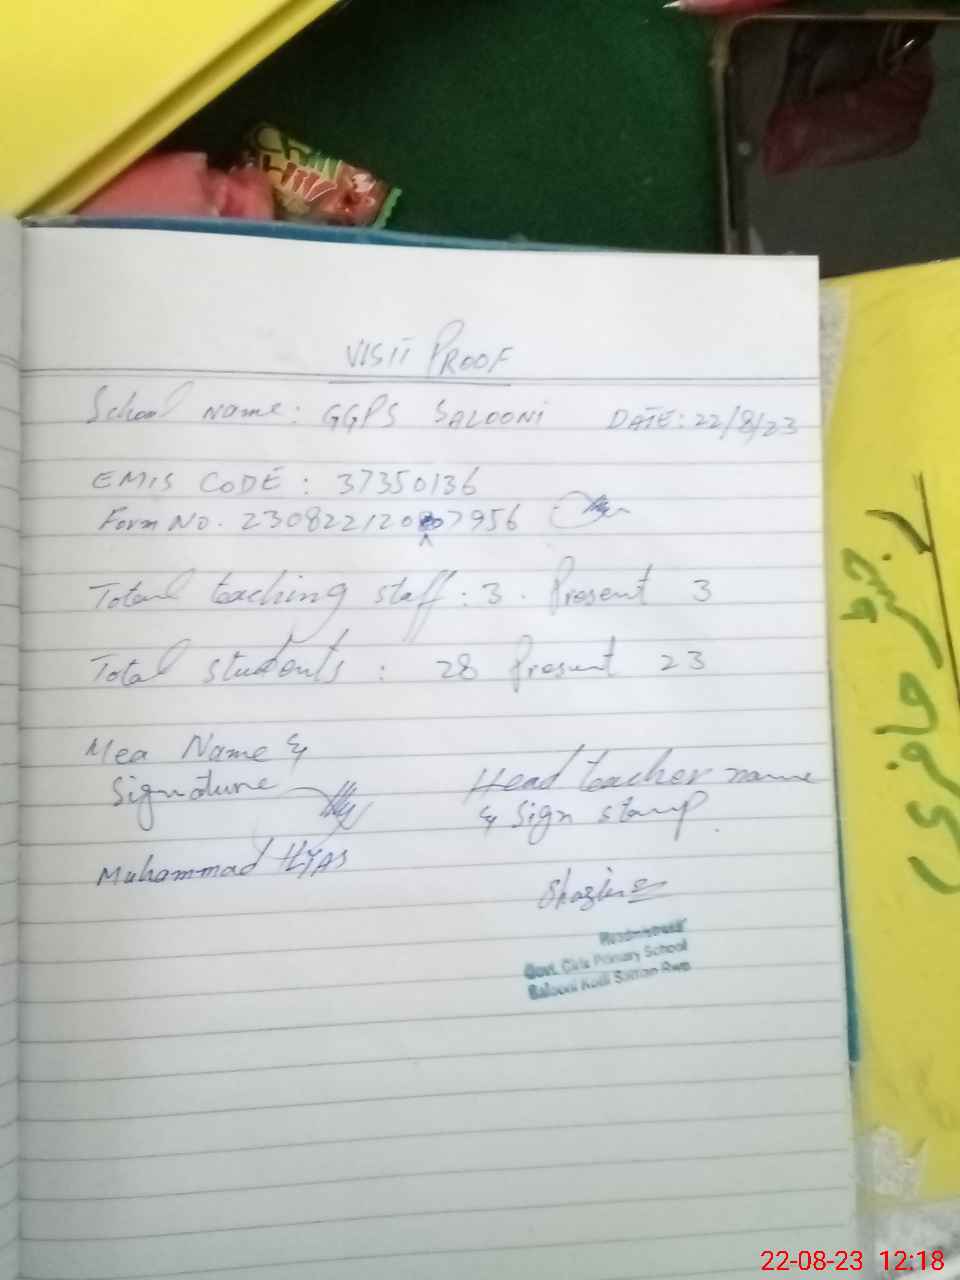 VISIT PROOF
School Name: GGPS SALOONI DATE: 22/8/23
EMIS CODE: 37350136
Form No. 2308221207956
Total teaching staff: 3. Present 3
Total students: 28 Present 23
Mea Name &
Signature
Head teacher name
& Sign stamp.
Muhammad ILYAS
Shazia
Headmistress
Govt. Girls Primary School
Salooni
رجسٹر حاضری
22-08-23 12:18